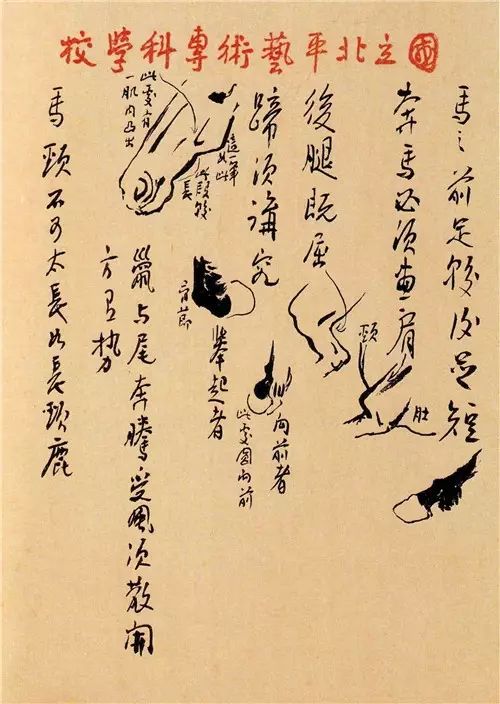 國立北平藝術專科學校
馬之前足較後足短
奔馬必須畫肩
頸
肚
後腿既屈
蹄須講究
向前者
此處圓向前
舉起者
有節
這一筆如此
此段較長
此處有
一肌肉凸出
鬣与尾奔騰受風須散開
方有勢
馬頸不可太長如長頸鹿